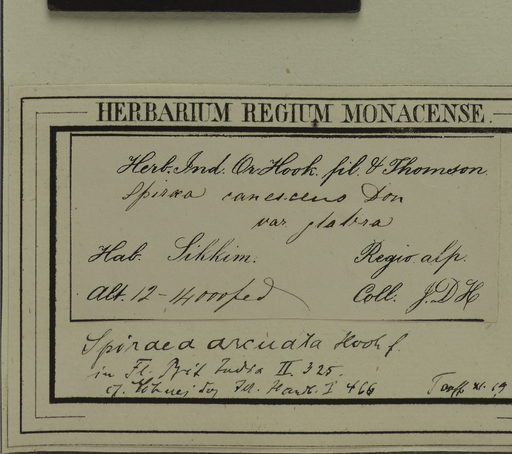 HERBARIUM REGIUM MONACENSE.
Herb. Ind. Or. Hook. fil. & Thomson
Spiraea canescens Don
var glabra
Hab. Sikkim. Regio alp.
Alt. 12-14000 ped Coll. J.D.H
Spiraea arcuata Hook f.
in Fl. Brit India II. 325.
cf. I 466